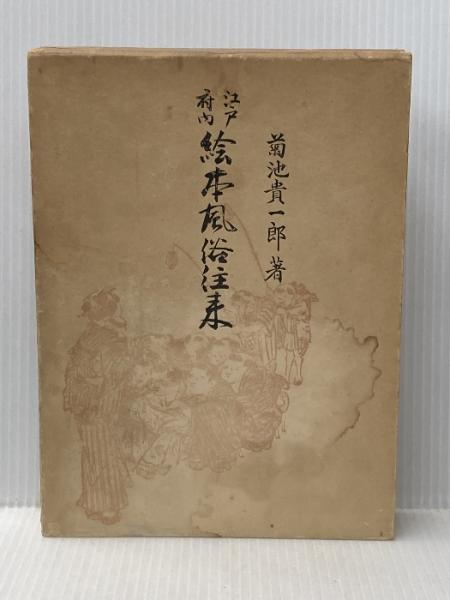 江戸
府内
絵本風俗往来
菊池貴一郎著